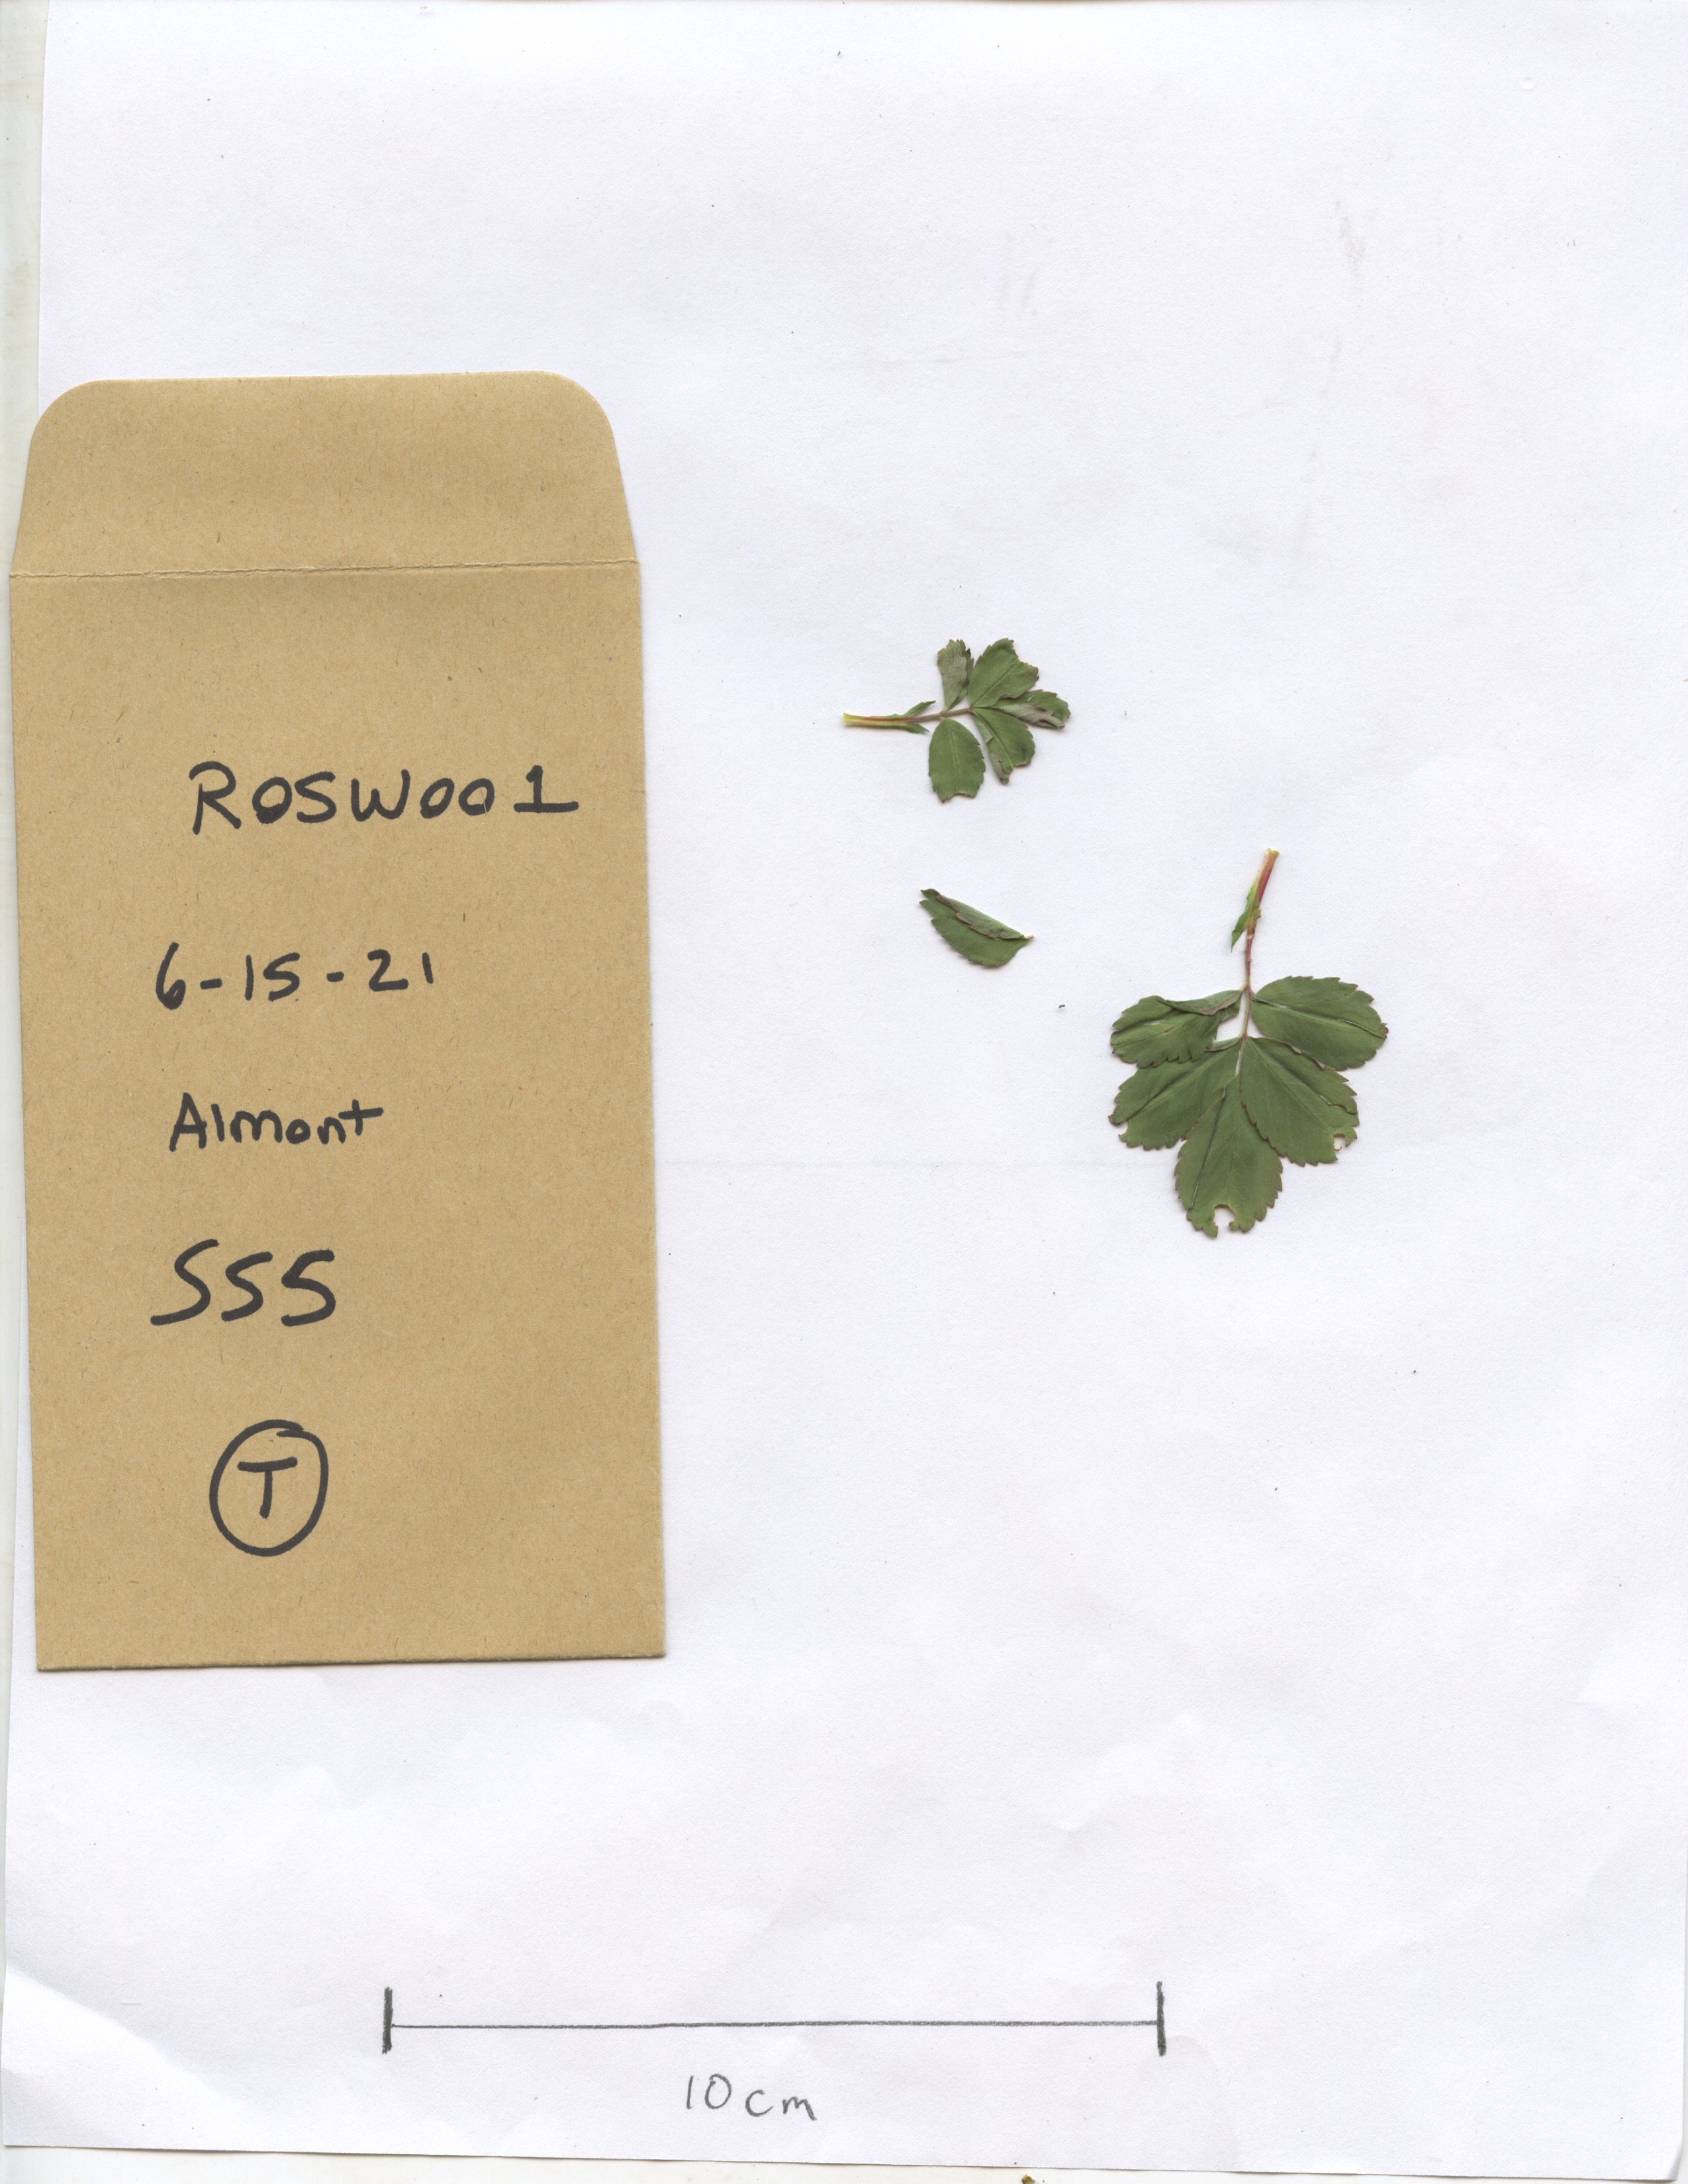 ROSWOO1
6-15-21
Almont
SSS
T
10cm